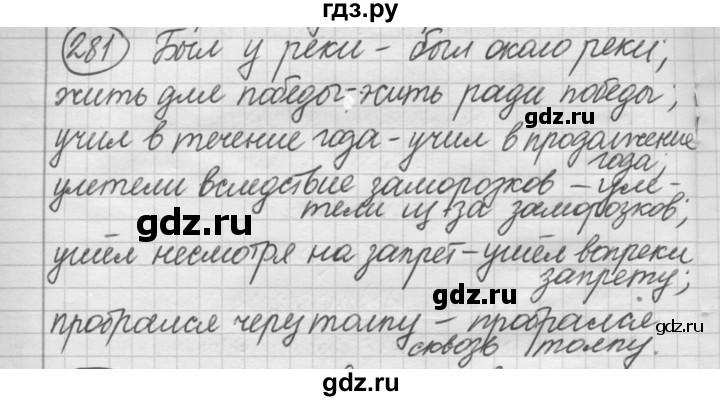 гдз.ру
281 Был у реки – был около реки;
жить для победы – жить ради победы;
учил в течение года – учил в продолжение
года;
улетели вследствие заморозков – уле-
тели из-за заморозков;
ушёл несмотря на запрет – ушёл вопреки
запрету;
пробрался через толпу – пробрался
сквозь толпу.
gdz.ru
gdz.ru
gdz.ru
gdz.ru
gdz.ru
gdz.ru